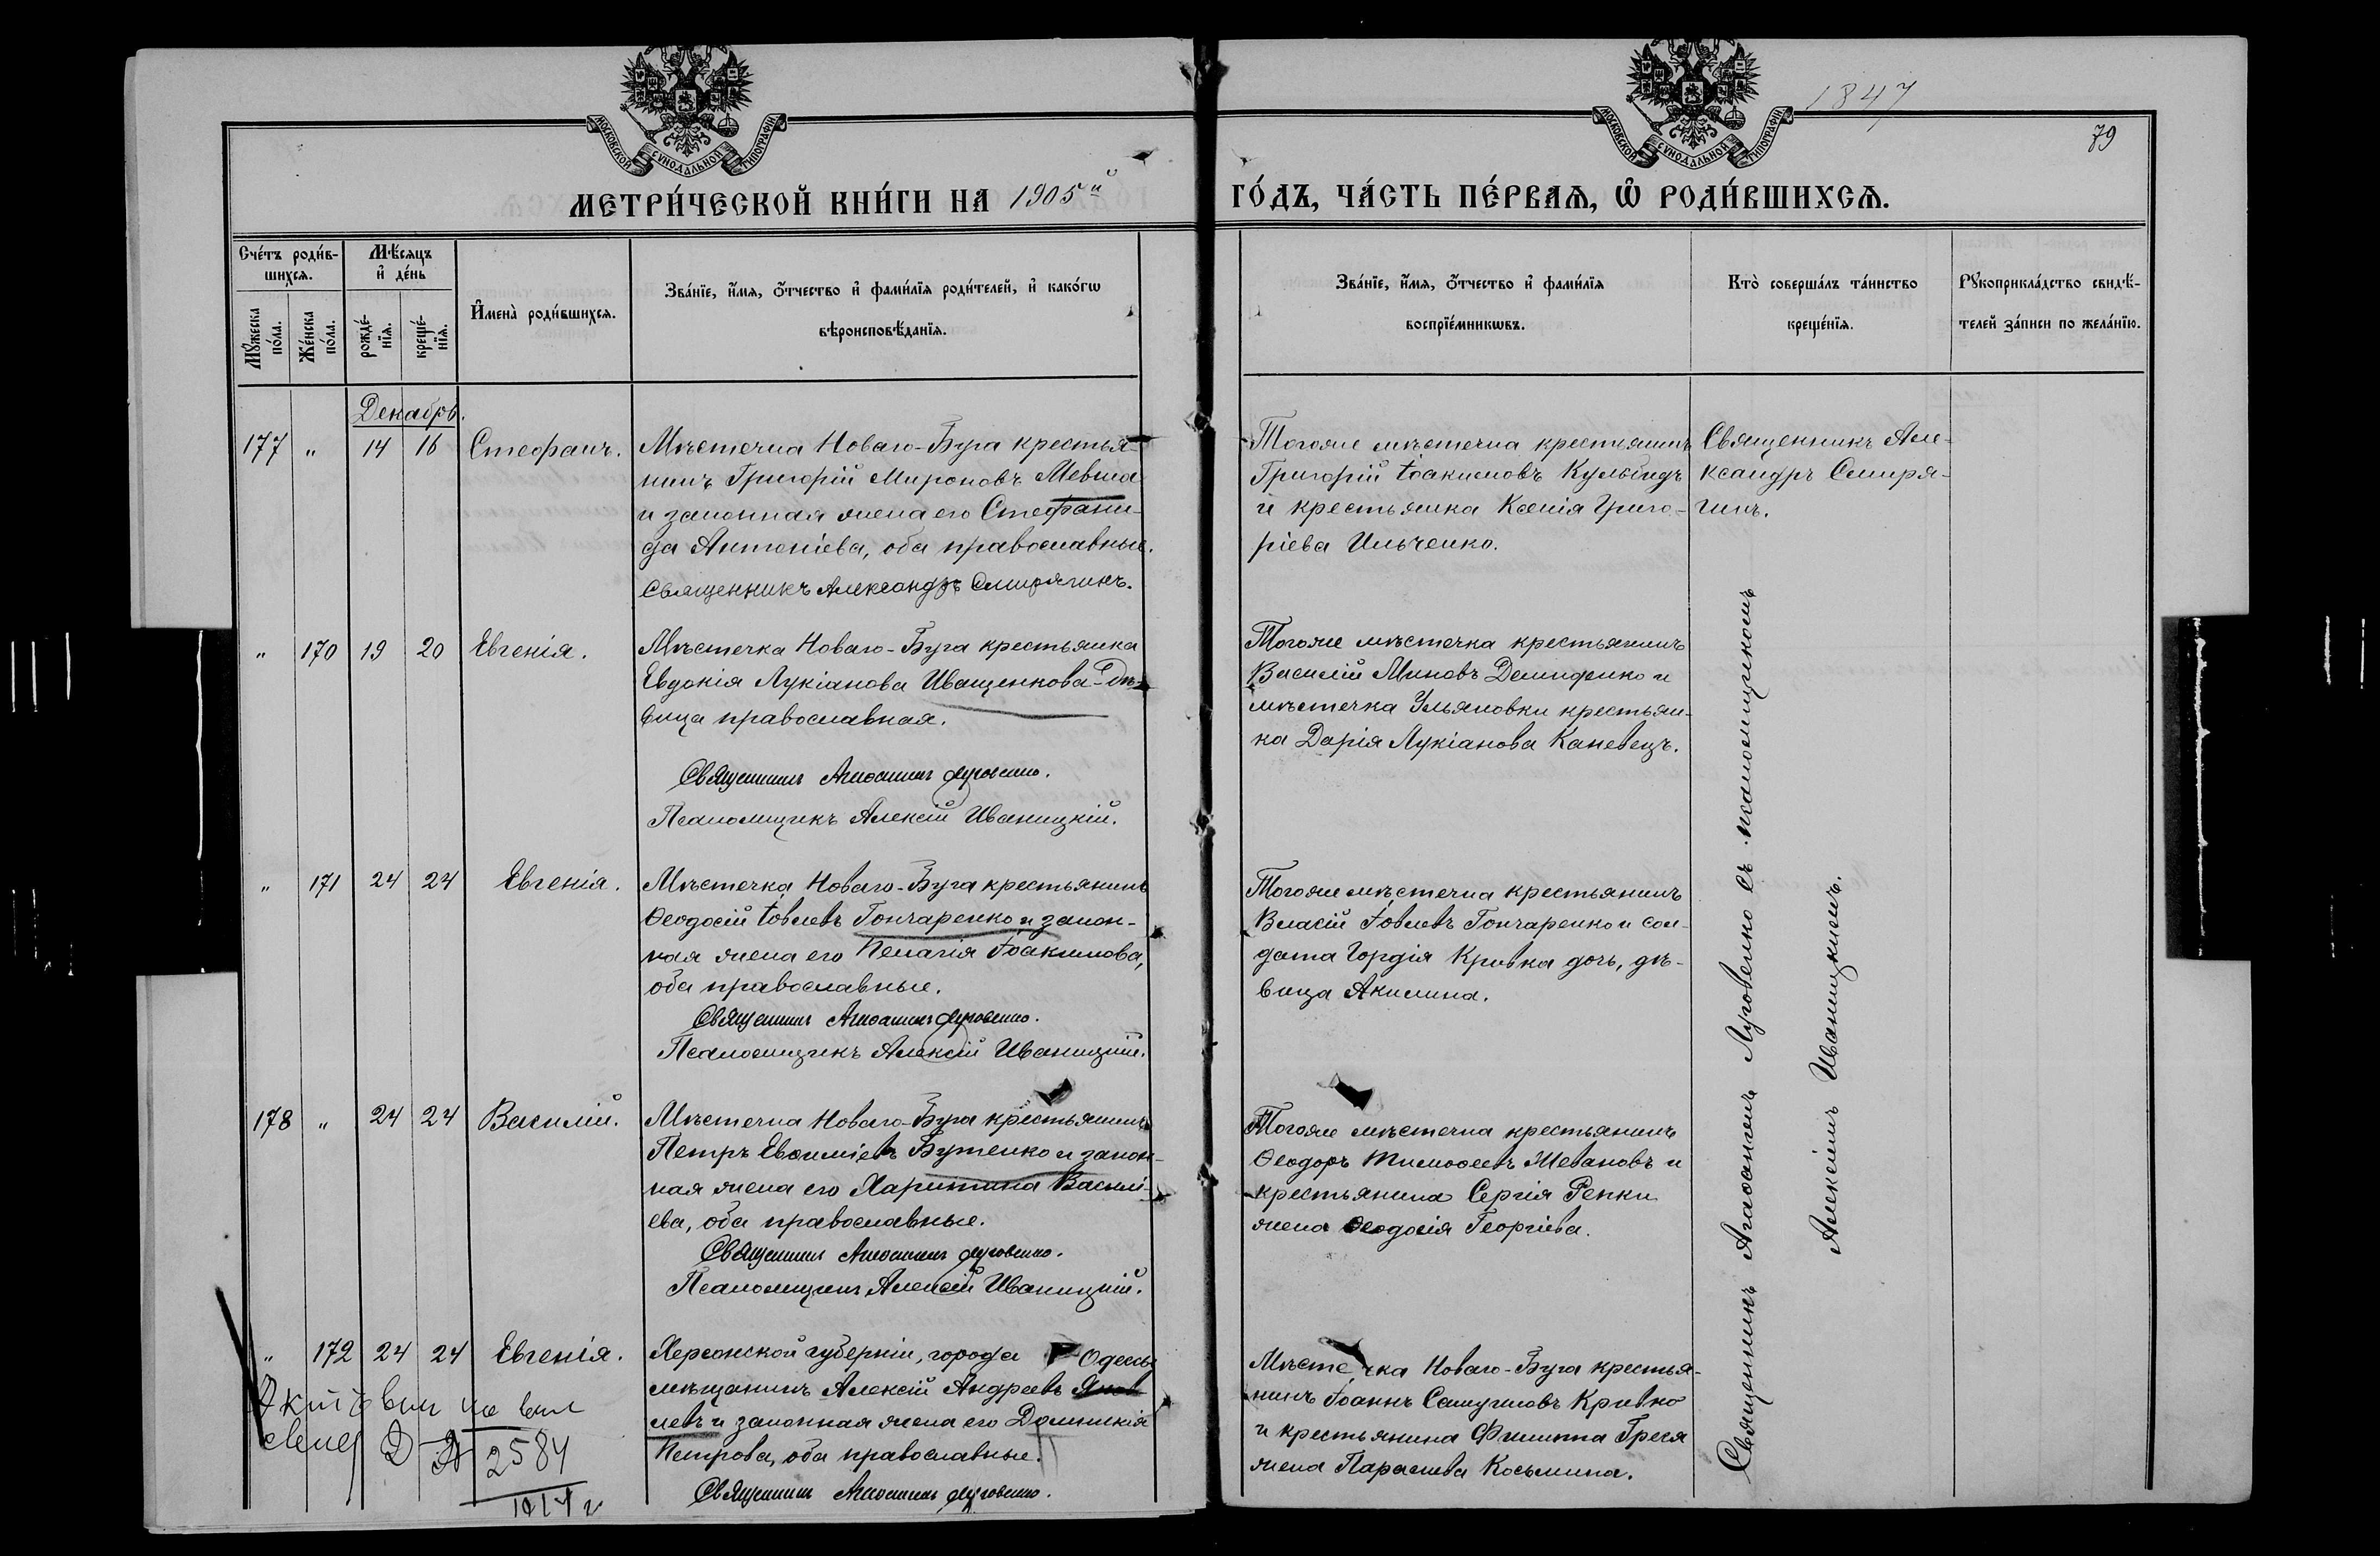 1847
79
МОСКОВСКОЙ СѴНОДАЛЬНОЙ ТИПОГРАФІИ
МОСКОВСКОЙ СѴНОДАЛЬНОЙ ТИПОГРАФІИ
МЕТРИ́ЧЕСКОЙ КНИ́ГИ НА 1905й
ГО́ДЪ, ЧА́СТЬ ПЕ́РВАѦ, Ѡ҆ РОДИ́ВШИХСѦ.
Сче́тъ роди́в-
шихсѧ.
Мꙋ́жеска по́ла.
Же́нска по́ла.
Мѣ́сѧцъ
и҆ де́нь
рожде́-нїѧ.
креще́-нїѧ.
И҆мена̀ роди́вшихсѧ.
Зва́нїе, и҆́мѧ, ѻ҆́тчество и҆ фами́лїѧ роди́телей, и҆ како́гѡ
вѣроисповѣ́данїѧ.
Зва́нїе, и҆́мѧ, ѻ҆́тчество и҆ фами́лїѧ
воспрїе́мникѡвъ.
Кто̀ соверша́лъ та́инство
креще́нїѧ.
Рꙋкоприкла́дство свидѣ́-
телей за́писи по жела́нїю.
Декабрь.
177 " 14 16 Стефанъ.
Мѣстечка Новаго-Буга крестья-
нинъ Григорій Мироновъ Левша
и законная жена его Стефани-
да Антоніева, оба православные.
Священникъ Александръ Смирягинъ.
Тогоже мѣстечка крестьянинъ
Григорій Іоакимовъ Кульбидъ
и крестьянка Ксенія Григо-
ріева Ильченко.
Священникъ Але-
ксандръ Смиря-
гинъ.
" 170 19 20 Евгенія.
Мѣстечка Новаго-Буга крестьянка
Евдокія Лукіанова Иващенкова-дѣ-
вица православная.
Священникъ Агаѳангелъ Луговенко.
Псаломщикъ Алексій Иваницкій.
Тогоже мѣстечка крестьянинъ
Василій Миновъ Демиденко и
мѣстечка Ульяновки крестьян-
ка Дарія Лукіанова Каневецъ.
" 171 24 24 Евгенія.
Мѣстечка Новаго-Буга крестьянинъ
Ѳеодосій Іовлевъ Гончаренко и закон-
ная жена его Пелагія Іоакимова,
оба православные.
Священникъ Агаѳангелъ Луговенко.
Псаломщикъ Алексій Иваницкій.
Тогоже мѣстечка крестьянинъ
Власій Іовлевъ Гончаренко и сол-
дата Гордія Кривка дочь, дѣ-
вица Акилина.
178 " 24 24 Василій.
Мѣстечка Новаго-Буга крестьянинъ
Петръ Евѳиміевъ Бутенко и закон-
ная жена его Харитина Василі-
ева, оба православные.
Священникъ Агаѳангелъ Луговенко.
Псаломщикъ Алексій Иваницкій.
Тогоже мѣстечка крестьянинъ
Ѳеодоръ Тимоѳеевъ Шевановъ и
крестьянина Сергія Репки
жена Ѳеодосія Георгіева.
" 172 24 24 Евгенія.
Херсонской губерніи, города Одессы
мѣщанинъ Алексій Андреевъ Яков
левъ и законная жена его Домникія
Петрова, оба православные.
Священникъ Агаѳангелъ Луговенко.
Мѣстечка Новаго-Буга крестья-
нинъ Іоаннъ Самуиловъ Кривко
и крестьянина Филиппа Грега
жена Параскева Косьмина.
Священникъ Агаѳангелъ Луговенко съ псаломщикомъ
Алексіемъ Иваницкимъ.
2584
1914 г